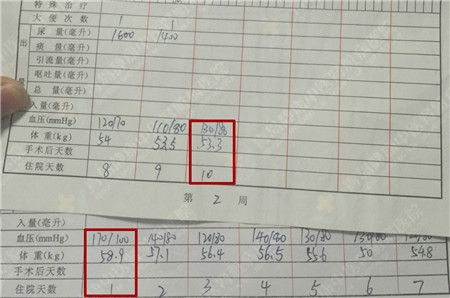 特殊治疗
大便次数 1 1
出 尿量(毫升) 1600 1400
痰量(毫升)
引流量(毫升)
呕吐量(毫升)
量 总量(毫升)
入量(毫升)
血压(mmHg) 120/70 110/80 130/80
体重(kg) 54 53.5 53.3
手术后天数
住院天数 8 9 10
第 2 周
入量(毫升)
血压(mmHg) 170/100 140/80 120/80 140/80 130/80
体重(kg) 58.9 57.1 56.4 56.5 55.6 50 54.8
手术后天数
住院天数 1 2 3 4 5 6 7